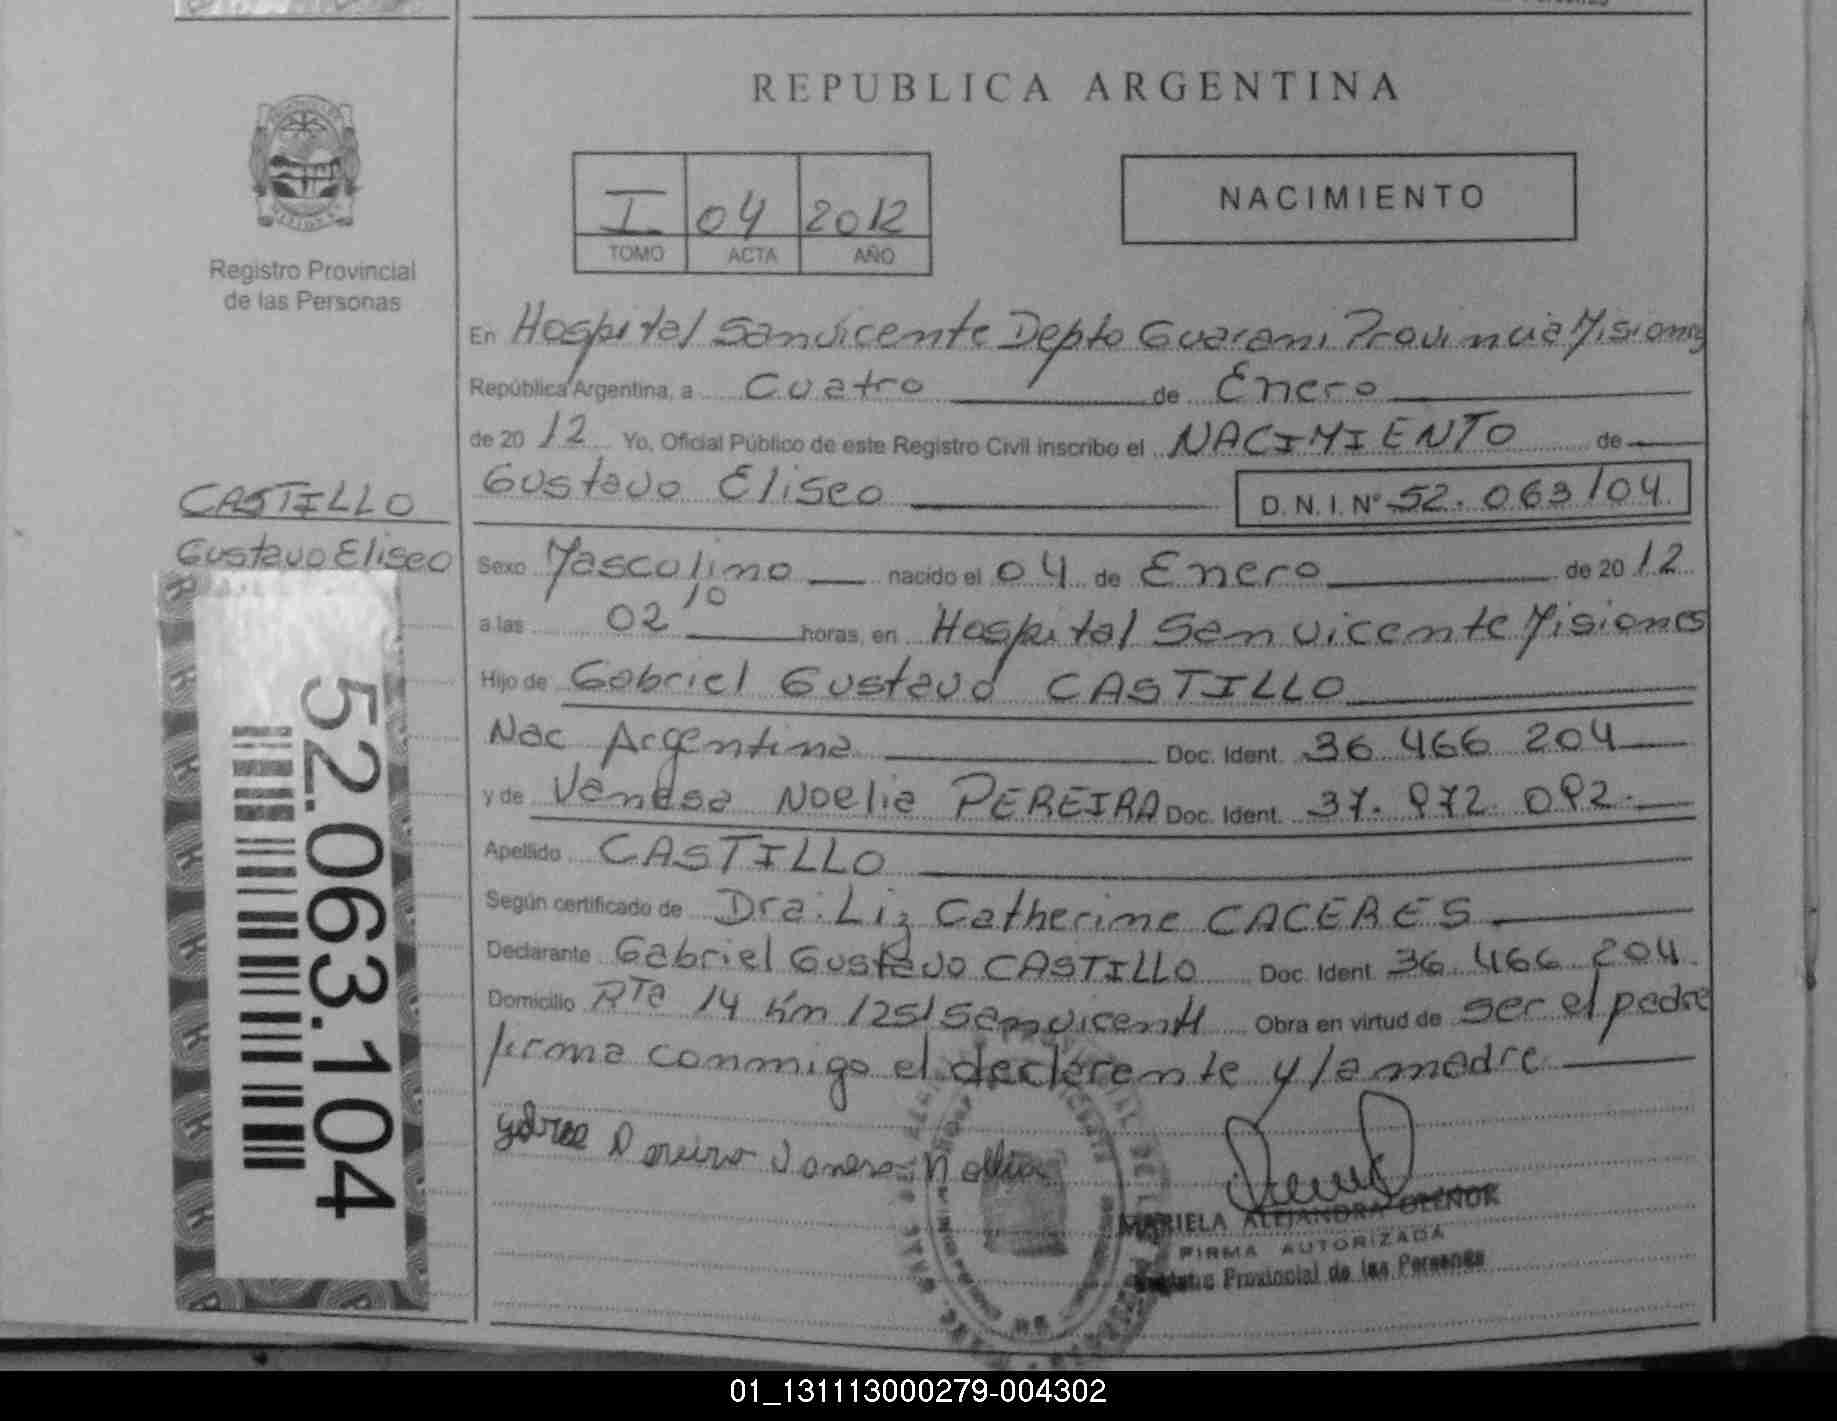 REPUBLICA ARGENTINA
Registro Provincial
de las Personas
I 04 2012
TOMO ACTA AÑO
NACIMIENTO
En Hospital San Vicente Depto Guarani Provincia Misiones
República Argentina, a Cuatro de Enero
de 2012 Yo, Oficial Público de este Registro Civil inscribo el NACIMIENTO de
Gustavo Eliseo D. N. I. Nº 52.063104
CASTILLO
Gustavo Eliseo
52.063.104
Sexo Masculino nacido el 04 de Enero de 2012
a las 02 10 horas, en Hospital San Vicente Misiones
Hijo de Gabriel Gustavo CASTILLO
Nac Argentina Doc. Ident. 36 466 204
y de Vanesa Noelia PEREIRA Doc. Ident. 37. 972 092.
Apellido CASTILLO
Según certificado de Dra. Liz Catherine CACERES
Declarante Gabriel Gustavo CASTILLO Doc. Ident. 36 466 204
Domicilio RTa 14 Km 1251 San Vicente Obra en virtud de ser el padre
firma conmigo el declarente y la madre
MARIELA ALEJANDRA OLENOK
FIRMA AUTORIZADA
Registro Provincial de las Personas
01_131113000279-004302